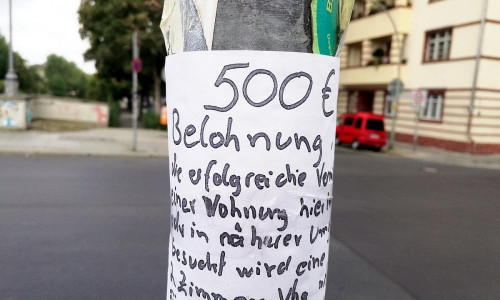 500 €
Belohnung
erfolgreiche
einer Wohnung hier
in näherer
gesucht wird eine
2 Zimmer